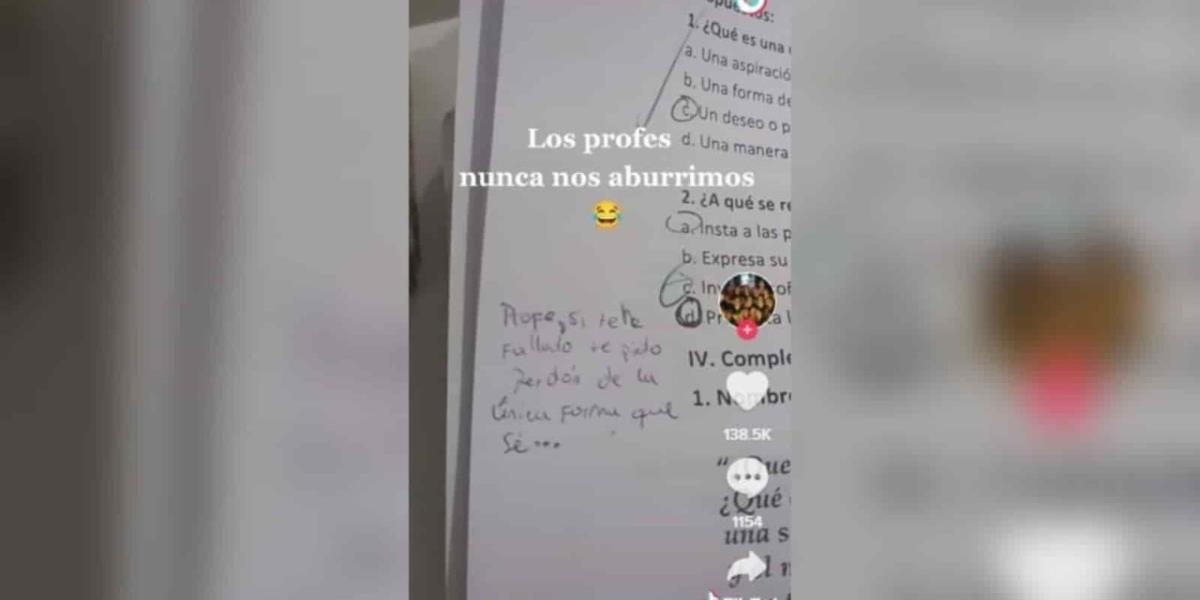 puestos:
1. ¿Qué es una
a. Una aspiració
b. Una forma de
c. Un deseo o p
d. Una manera
Los profes
nunca nos aburrimos
2. ¿A qué se re
a. Insta a las p
b. Expresa su
c. In
d. Pr
Profe, si te he
fallado te pido
perdón de la
única forma que
sé...
IV. Comple
1. Nombre
138.5K
“
¿Qué
1154
una s